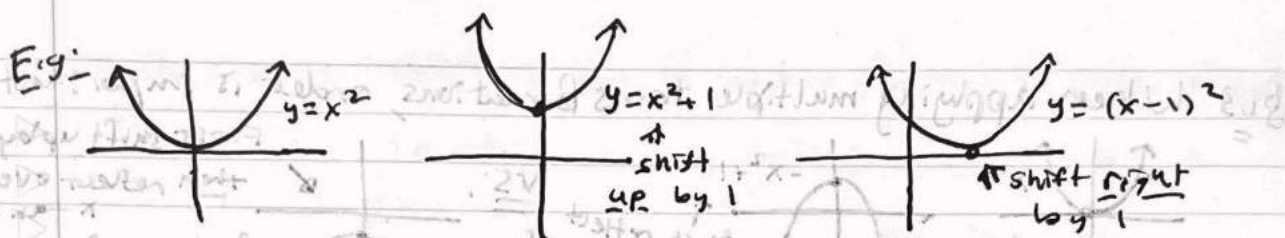 E.g.
y=x²
y=x²+1
shift
up by 1
y=(x-1)²
shift right
by 1